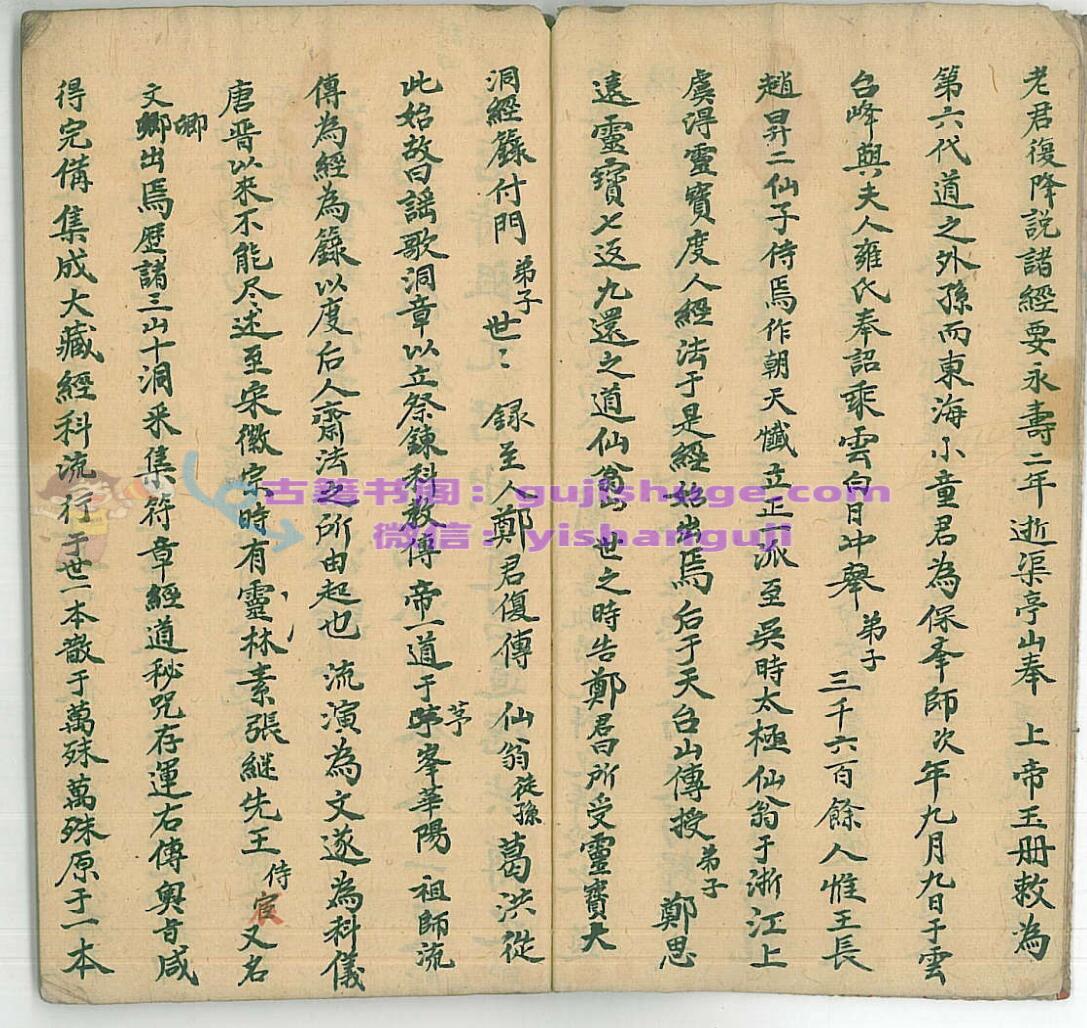 老君復降説諸經要永壽二年逝渠亭山奉 上帝玉册敕為
第六代道之外孫而東海小童君為保奉師次年九月九日于雲
台峰與夫人雍氏奉詔乘雲白日冲舉弟子三千六百餘人惟王長
趙昇二仙子侍焉作朝天懺立正派至吳時太極仙翁于浙江上
虞得靈寳度人經法于是經始出焉后于天台山傳授弟子鄭思
遠靈寳七返九還之道仙翁 世之時告鄭君曰所受靈寳大
洞經籙付門弟子世〻 録至人鄭君復傳 仙翁徒孫葛洪從
此始故曰謡歌洞章以立祭錬科教傳帝一道于茅峯華陽一祖師流
傳為經為籙以度后人齋法之所由起也 流演為文遂為科儀
唐晋以來不能尽述至宋徽宗時有靈林素張継先王侍宸又名
文卿出焉歴諸三山十洞采集符章經道秘咒存運右傳奥旨咸
得完備集成大藏經科流行于世一本散于萬殊萬殊原于一本
古善书阁：gujishuge.com
微信：yishanguji